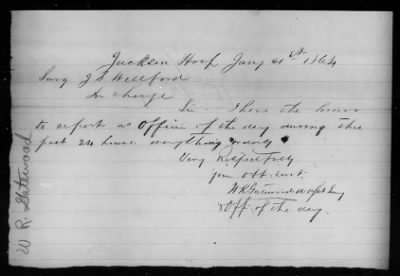 Jackson Hosp Jany 21st 1864
Surg J S Wellford
In charge
Sir I have the honor
to report as Officer of the day during the
past 24 hours everything
Very Respectfully
your obt. svt.
W R Asst Surg
Off of the day.
W R. Gatewood